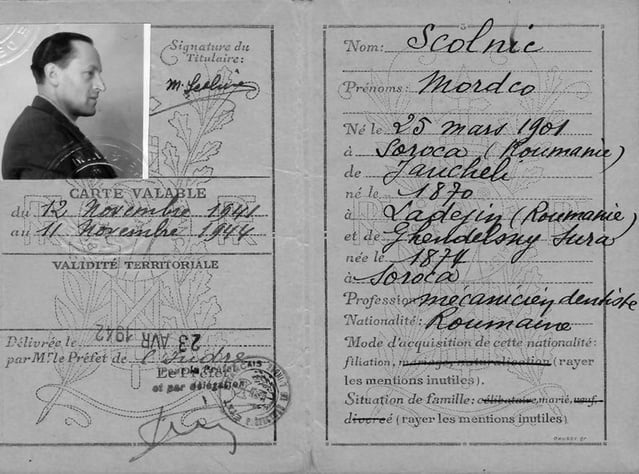 Signature du
Titulaire:
CARTE VALABLE
du 12 Novembre 1941
au 11 Novembre 1944
VALIDITÉ TERRITORIALE
Délivrée le 23 AVR 1942
par Mr le Préfet de l'Indre
Le Préfet
et par délégation
Nom: Scolnic
Prénoms: Mordco
Né le 25 mars 1901
à Soroca (Roumanie)
de Jaucheli
né le 1870
à Ladejin (Roumanie)
et de Ghendelsny Sura
née le 1874
à Soroca
Profession mécanicien dentiste
Nationalité: Roumaine
Mode d'acquisition de cette nationalité:
filiation, mariage, naturalisation (rayer
les mentions inutiles).
Situation de famille: célibataire, marié, veuf,
divorcé (rayer les mentions inutiles)